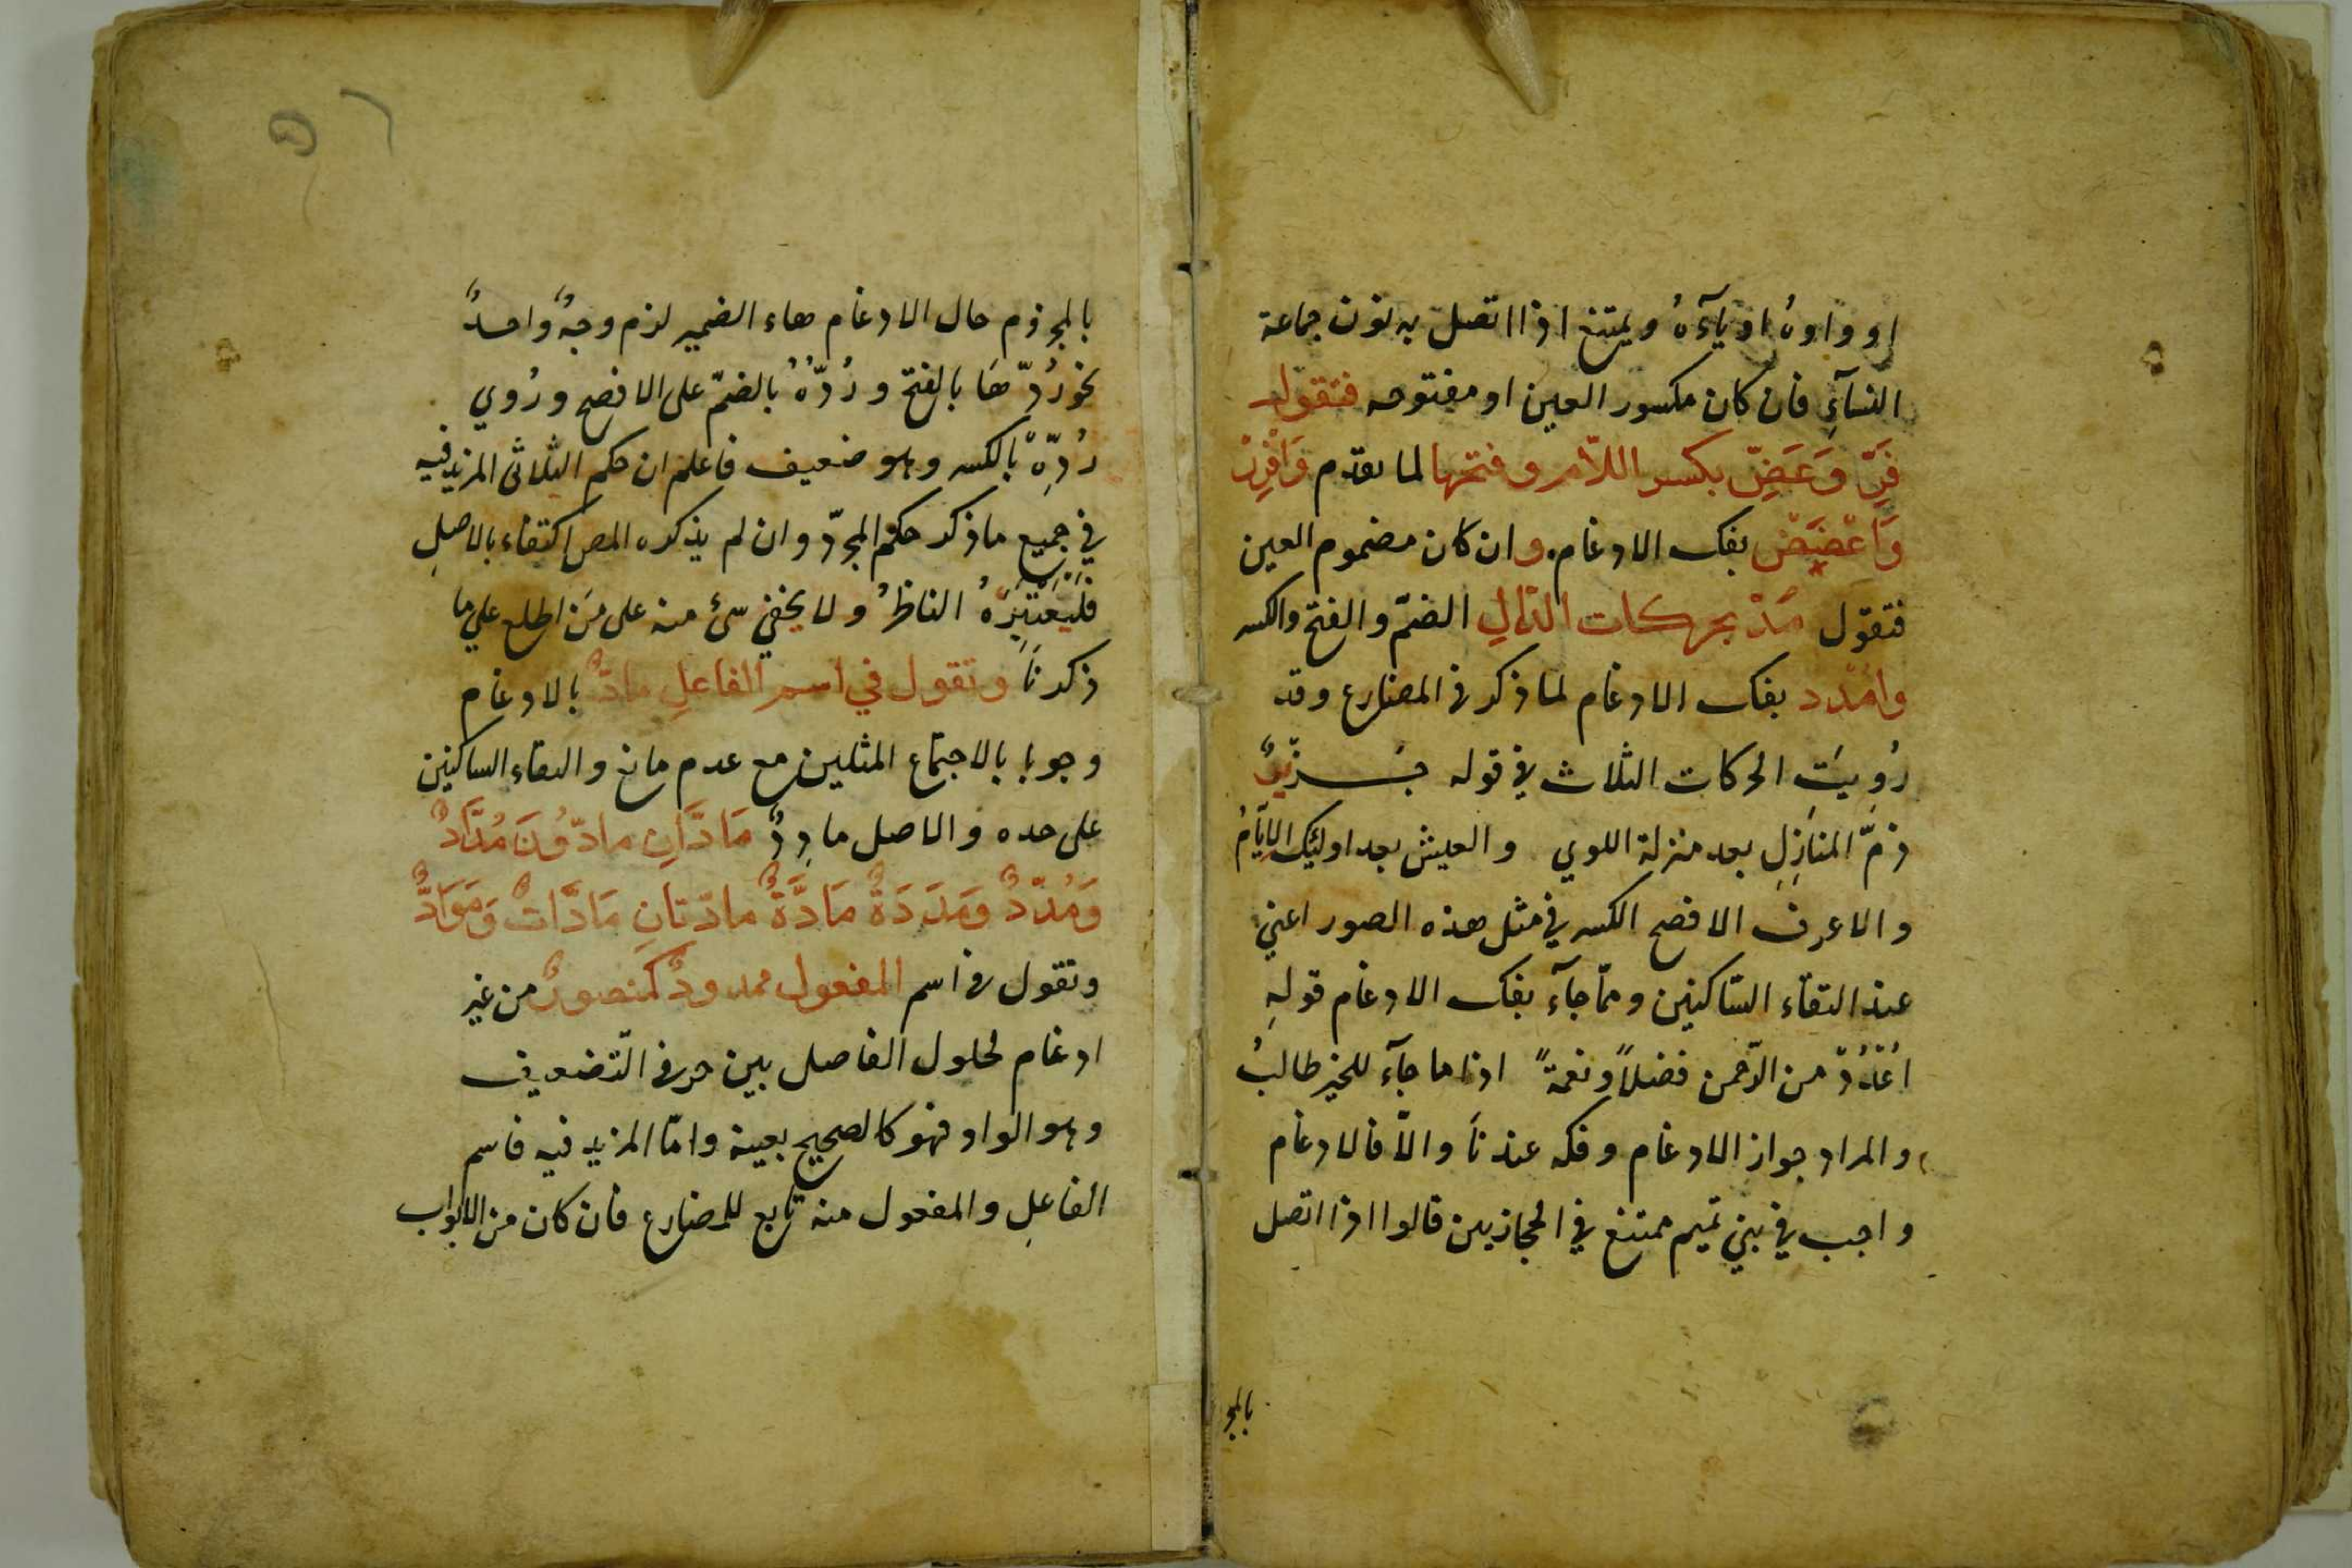 او واوهُ او يآءهُ ويمتنع اذا اتصل به نون جماعة
النسآءِ فان كان مكسور العين او مفتوحه فتقول
فِرّ وَعَضِّ بكسر اللّام وفتحها لما تقدم وَافْرِرْ
وَاعْضَضْ بفك الادغام وان كان مضموم العين
فتقول مُدّ بحركات الدّالِ الضمّ والفتح والكسر
وامْدُد بفك الادغام لما ذكر في المضارع وقد
رُوِيَتِ الحركات الثلاث في قوله جرير
ذمّ المنازِلِ بعد منزلة اللوي والعيش بعد اولئِك الايّامُ
والاعرف الافصح الكسر في مثل هذه الصور اعني
عند التقآء السّاكنين وممّا جآء بفك الادغام قولهِ
اُعْدُدْ من الرّحمن فضلاً ونعمةً اذا ما جآء للخير طالبُ
والمراد جواز الادغام وفكه عندنا والّا فالادغام
واجب في بني تميم ممتنع في الحجازيين قالوا اذا اتصل
بالمج
بالمجزوم حال الادغام هاء الضمير لزم وجهٌ واحدٌ
نحو رُدّهَا بالفتح ورُدّهُ بالضمّ على الافصح ورُوي
رُدِّهِ بالكسر وهو ضعيف فاعلم ان حكم الثلاثى المزيد فيه
في جميع ما ذكر حكم المجرّد وان لم يذكره المص اكتفاء بالاصلِ
فَلْيَعْتَبِرْهُ الناظرُ ولا يخفي شئ منه على مَن اطلع علي ما
ذكرنا وتقول في اسم الفاعلِ مادٌّ بالادغام
وجوبا بالاجتماع المثلين مع عدم مانع والتقاء الساكنين
على حده والاصل مادِدٌ مَادَّانِ مادّوُنَ مُدَّادٌ
وَمُدّدٌ وَمَدَدَةٌ مَادَّةٌ مادّتانِ مَادَّاتٌ وَمَوَادُّ
وتقول في اسم المفعول ممدودٌ كمنصورٌ من غير
ادغام لحلول الفاصل بين حرفى التّضعيف
وهو الواو فهو كالصحيح بعينه وامّا المزيد فيه فاسم
الفاعلِ والمفعول منه تابع للمضارع فان كان من الابواب